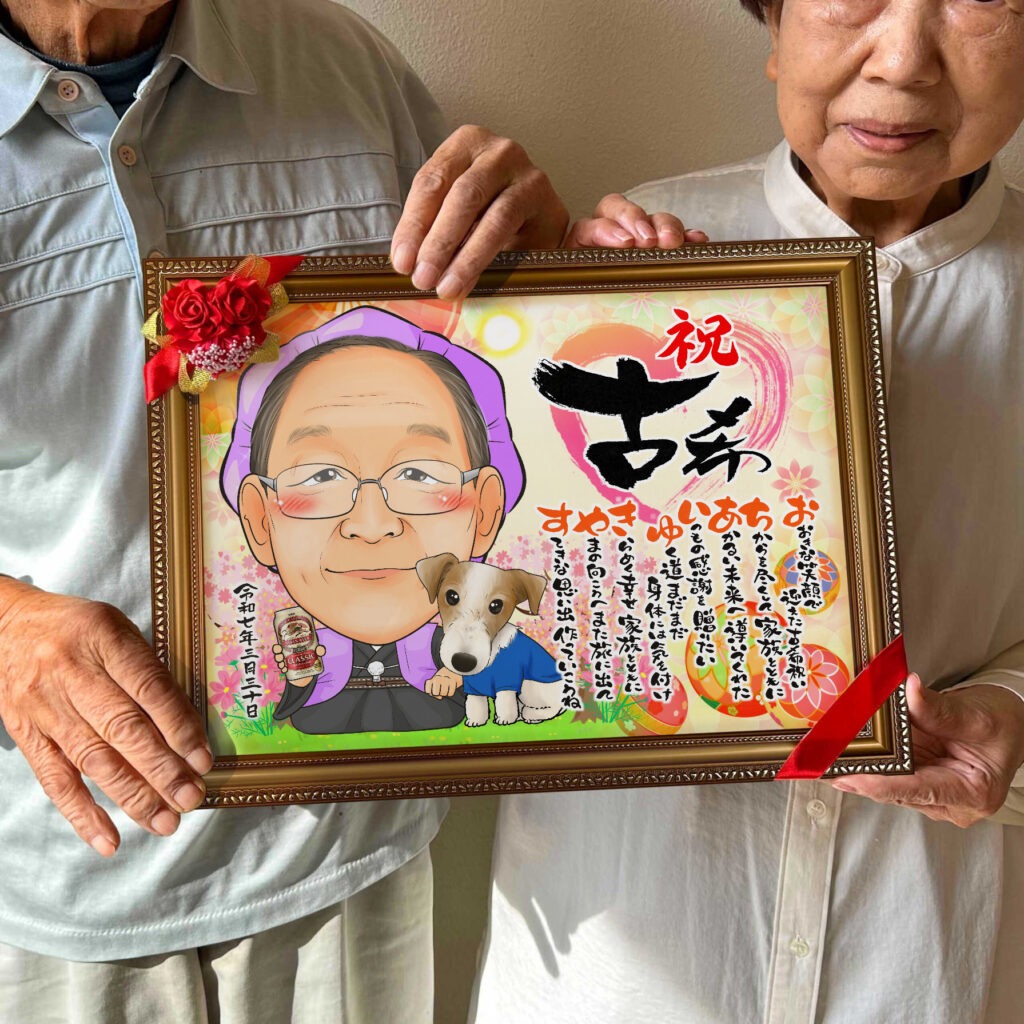 祝
古希
おおきな笑顔で 迎えた古希祝い
ちからを尽くし 家族とともに
あかるい未来へ 導いてくれた
いつもの感謝を 贈りたい
ゆく道まだまだ 身体には気を付け
きらめく幸せ 家族とともに
やまの向こうへ また旅に出て
すてきな思い出 作っていこうね
令和七年三月三十日
CLASSIC